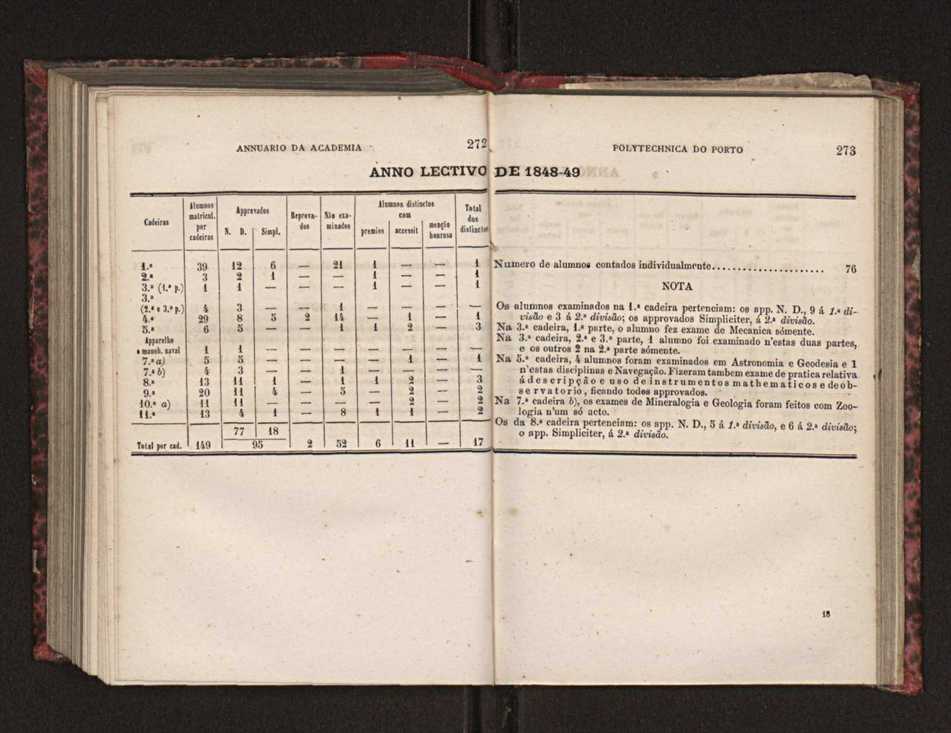 ANNUARIO DA ACADEMIA 272
ANNO LECTIVO
Cadeiras | Alumnos matricul. por cadeiras | Approvados N. D. | Simpl. | Reprovados | Não examinados | Alumnos distinctos com premios | accessit | menção honrosa | Total dos distinctos
1.ª 39 12 6 — 21 1 — — 1
2.ª 3 2 1 — — 1 — — 1
3.ª (1.ª p.) 1 1 — — — 1 — — 1
3.ª
(2.ª e 3.ª p.) 4 3 — — 1 — — — —
4.ª 29 8 5 2 14 — 1 — 1
5.ª 6 5 — — 1 1 2 — 3
Apparelho
e manob. naval 1 1 — — — — — — —
7.ª a) 5 5 — — — — 1 — 1
7.ª b) 4 3 — — 1 — — — —
8.ª 13 11 1 — 1 1 2 — 3
9.ª 20 11 4 — 5 — 2 — 2
10.ª a) 11 11 — — — — 2 — 2
11.ª 13 4 1 — 8 1 1 — 2
77 18
Total por cad. 149 95 2 52 6 11 — 17
POLYTECHNICA DO PORTO 273
DE 1848-49
Numero de alumnos contados individualmente...................... 76
NOTA
Os alumnos examinados na 1.ª cadeira pertenciam: os app. N. D., 9 á 1.ª di-
visão e 3 á 2.ª divisão; os approvados Simpliciter, á 2.ª divisão.
Na 3.ª cadeira, 1.ª parte, o alumno fez exame de Mecanica sómente.
Na 3.ª cadeira, 2.ª e 3.ª parte, 1 alumno foi examinado n'estas duas partes,
e os outros 2 na 2.ª parte sómente.
Na 5.ª cadeira, 4 alumnos foram examinados em Astronomia e Geodesia e 1
n'estas disciplinas e Navegação. Fizeram tambem exame de pratica relativa
á descripção e uso de instrumentos mathematicos e de ob-
servatorio, ficando todos approvados.
Na 7.ª cadeira b), os exames de Mineralogia e Geologia foram feitos com Zoo-
logia n'um só acto.
Os da 8.ª cadeira pertenciam: os app. N. D., 5 á 1.ª divisão, e 6 á 2.ª divisão;
o app. Simpliciter, á 2.ª divisão.
18